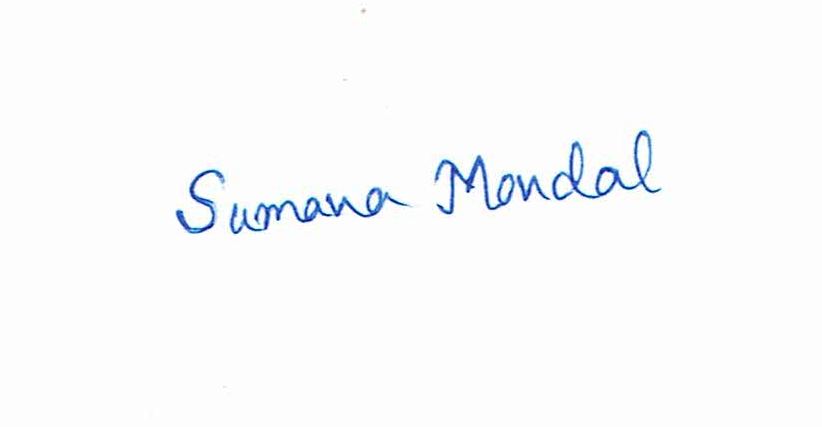 Sumana Mondal